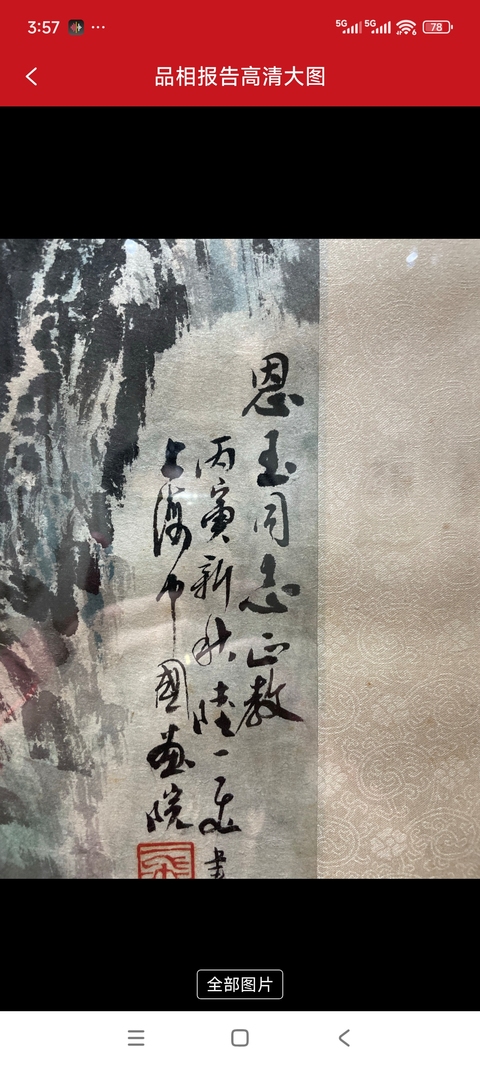 3:57
5G 5G 78
品相报告高清大图
恩玉同志正教
丙寅新秋陸一飛畫
上海中國畫院
全部图片